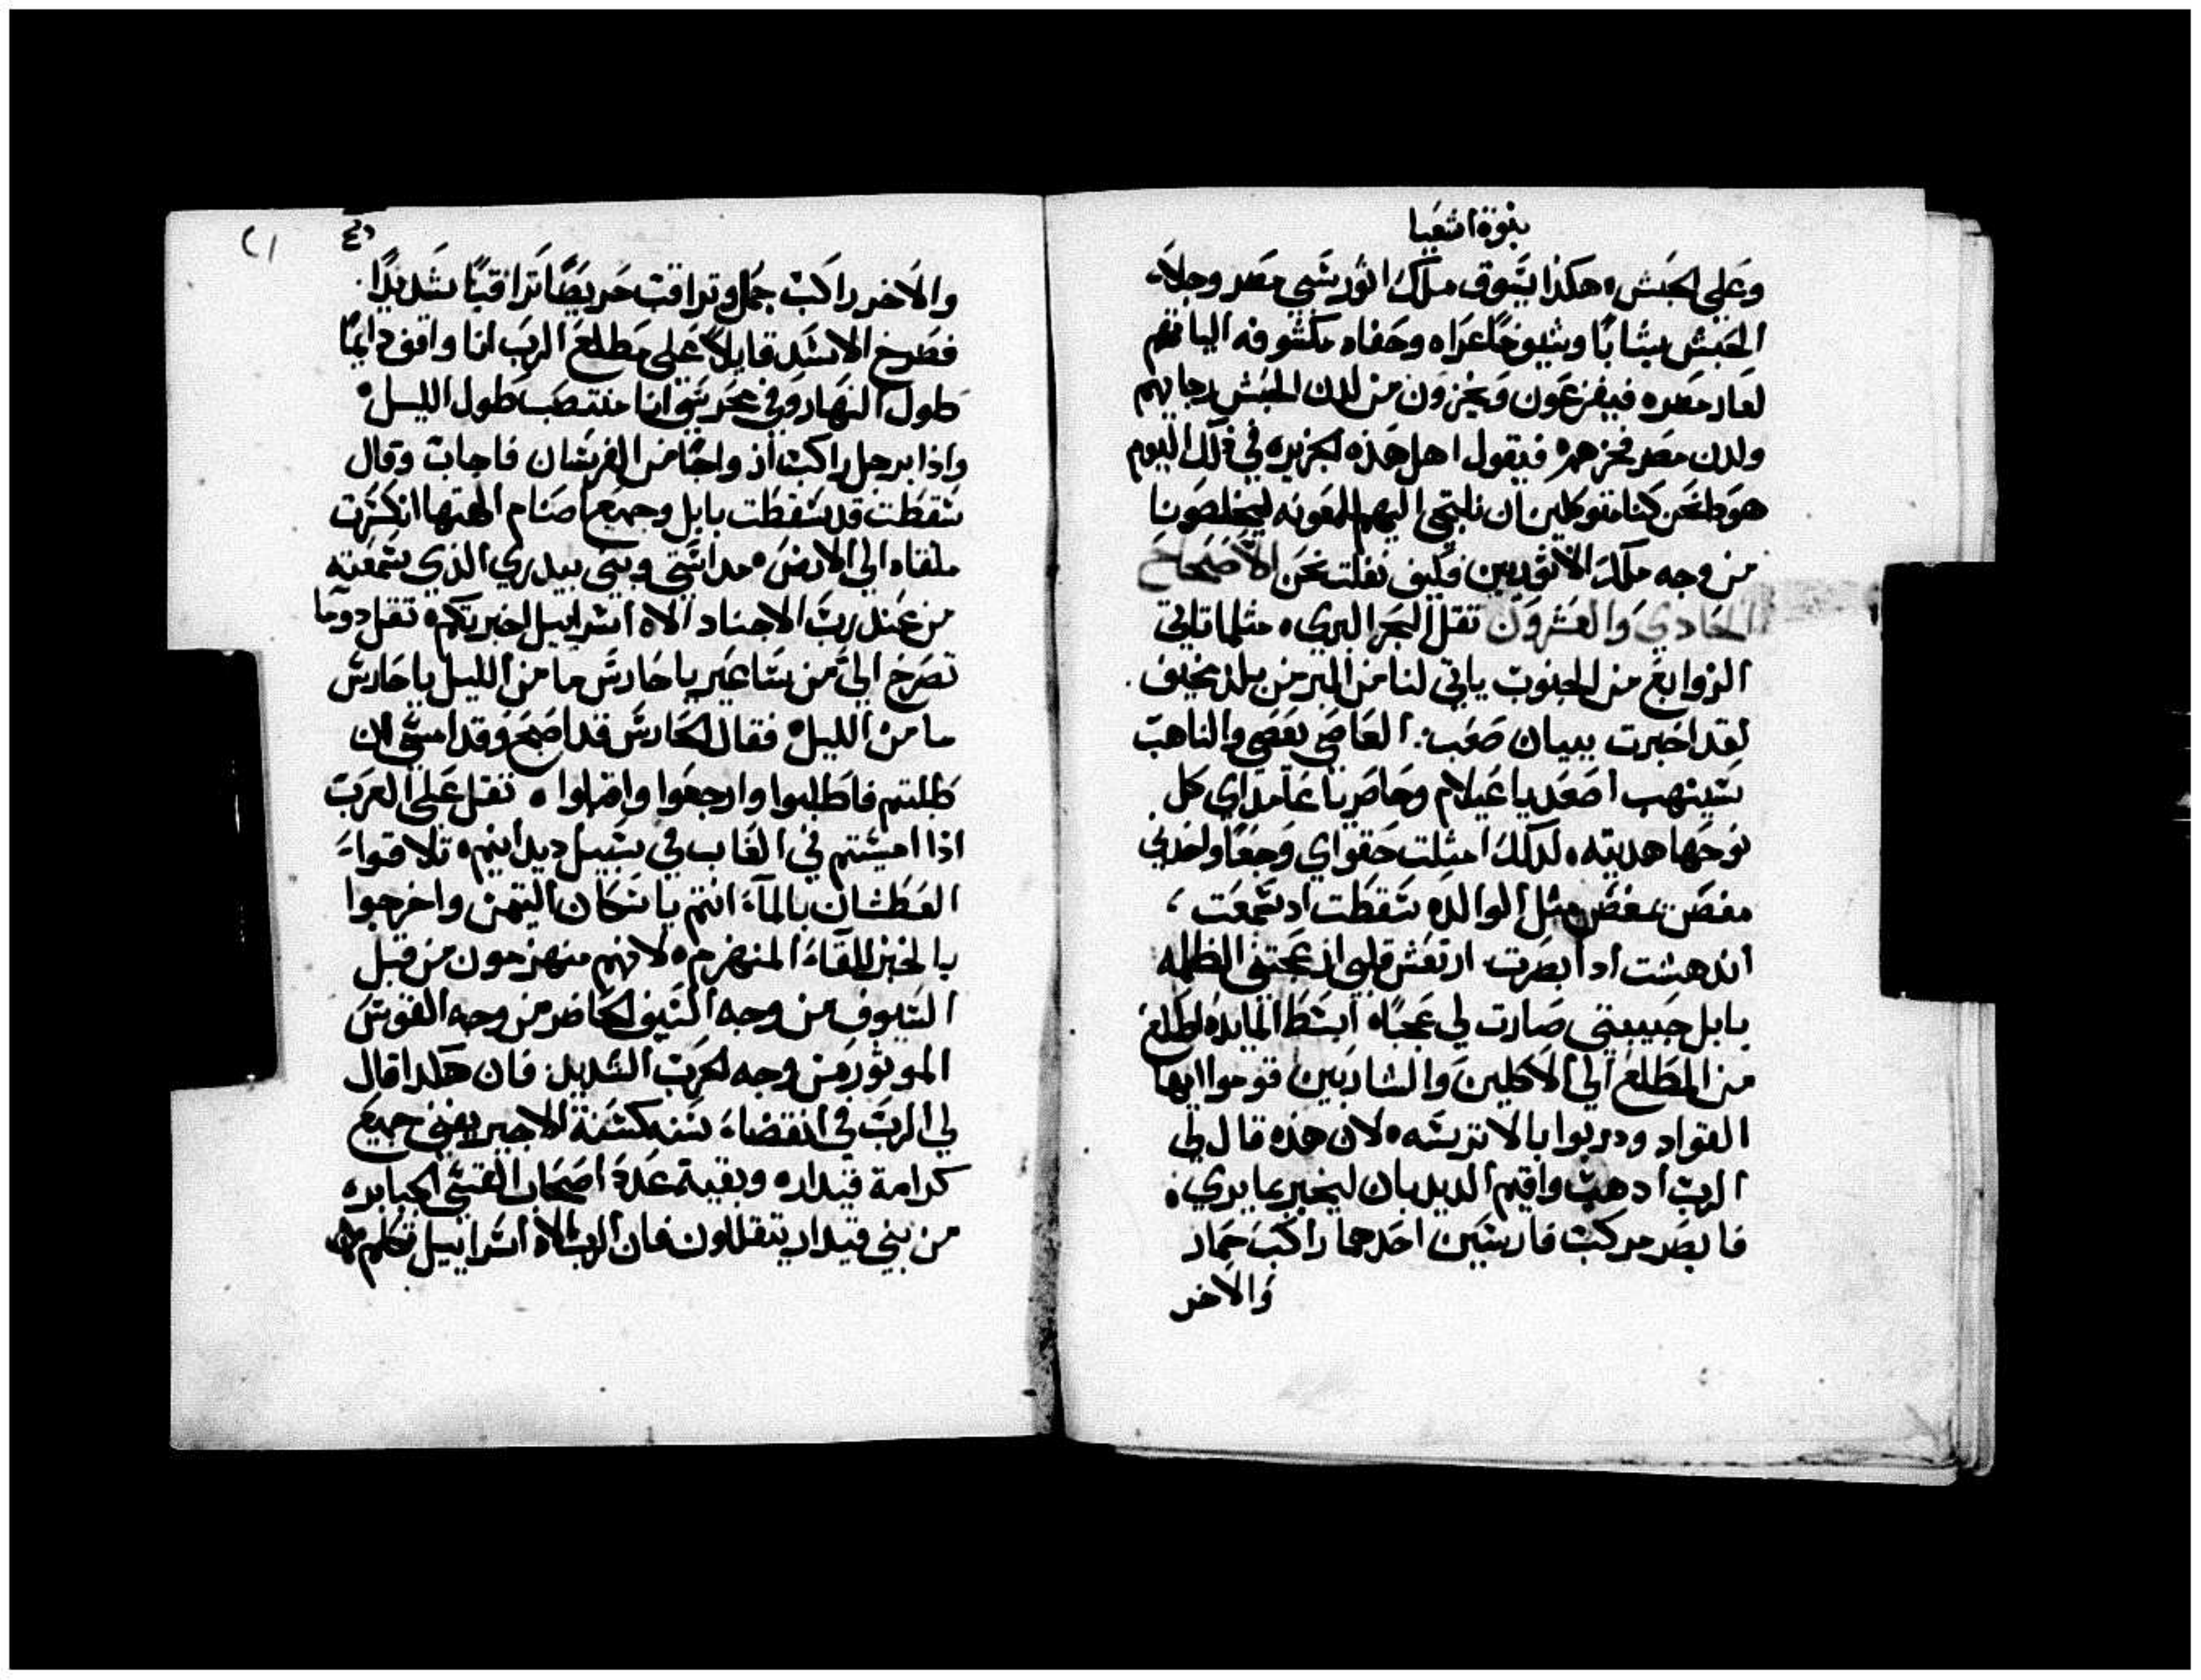 نبوة اشعيا
وعلي الحبش، هكذا يسوق ملك اثور سبي مصر وجلاء
الحبش شبابًا وشيوخًا عراه وحفاه مكشوفه الياتهم
لعار مصره فيفزعون ويخزون من لدن الحبش رجايهم
ولدن مصر فخرهم، فيقول اهل هذه الجزيره في ذلك اليوم
هوذا نحن كنا متوكلين ان نلتجي اليهم للمعونه ليخلصونا
من وجه ملك الاثوريين فكيف نفلت نحن الاصحاح
الحادي والعشرون ثقل البحر البري، مثلما تاتي
الزوابع من الجنوب ياتي لنا من البر من بلد مخيف.
لقد اخبرت ببيان صعب: العاصي يعصي والناهب
سينهب اصعد يا عيلام وحاصر يا عامداي كل
نوحها هديته، لذلك امتلت حقواي وجعًا واخذني
مغص مثل الوالده سقطت اد سمعت،
اندهشت اد ابصرت ارتعش قلبي ازعجتني الظلمه
بابل حبيبتي صارت لي عجبًا، ابسط المايده اطلع
من المطلع الي الاكلين والشاربين قوموا ايها
القواد ودربوا بالاتريسه، لان هذه قال لي
الرب ادهب واقيم الديدبان ليخبر بما يري،
فابصر مركب فارسين احدهما راكب حمار
والاخر
والاخر راكب جمل وتراقب حريصًا تراقبًا شديدًا.
فصرخ الاسد قايلاً علي مطلع الرب انا واقف دايمًا
طول النهار وفي محرسي انا منتصب طول الليل
واذا برجل راكب ازواجًا من الفرسان فاجاب وقال
سقطت قد سقطت بابل وجميع اصنام الهتها انكسرت
ملقاه الي الارض، مداستي وبني بيدري الذي سمعته
من عند رب الاجناد الاه اسراييل اخبرتكم، ثقل دوما
تصرخ الي من ساعير يا حارس ما من الليل يا حارس
ما من الليل، فقال الحارس قد اصبح وقد امسي ان
طلبتم فاطلبوا وارجعوا واقبلوا، ثقل علي العرب
اذا امسيتم في الغاب في سبيل ديدانيم، تلاقواء
العطشان بالماء انتم يا سكان التيمن واخرجوا
بالخبز للقاء المنهزم، لانهم منهزمون من قبل
السيوف من وجه السيف الحاضر من وجه القوس
الموتور من وجه الحرب الشديد فان هكدا قال
لي الرب في انقضاء سنه كسنة الاجير يفني جميع
كرامة قيداره وبقية عدد اصحاب القسي الجبابره
من بني قيدار يتقللون فان الرب الاه اسراييل تكلم